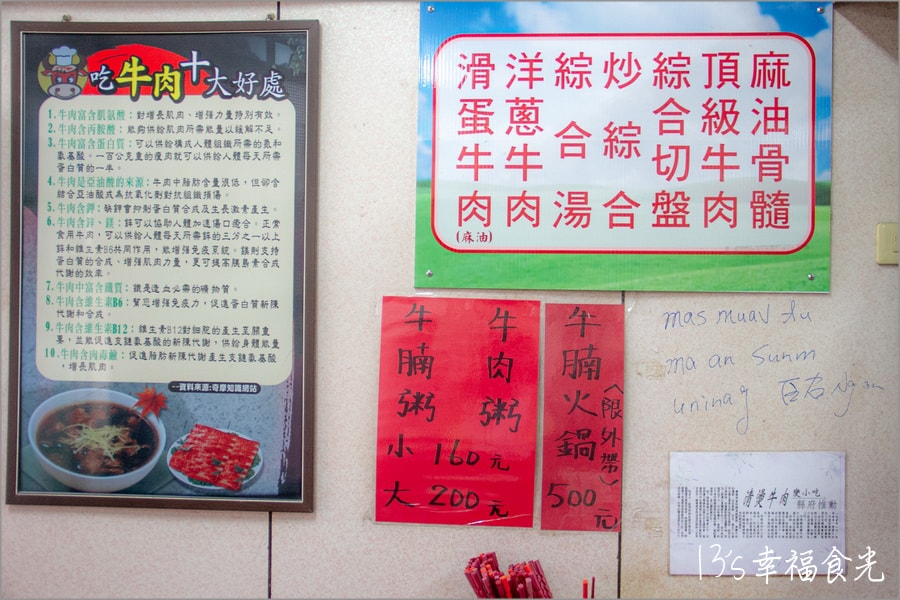 吃牛肉十大好處
1. 牛肉富含肌氨酸：對增長肌肉、增強力量特別有效。
2. 牛肉含丙胺酸：能夠供給肌肉所需能量以緩解不足。
3. 牛肉富含蛋白質：可以供給構成人體組織所需的氮和
氨基酸。一百公克重的瘦肉就可以供給人體每天所需
蛋白質的一半。
4. 牛肉是亞油酸的來源：牛肉中脂肪含量很低，但卻含
結合亞油酸成為抗氧化劑對抗組織損傷。
5. 牛肉含鉀：缺鉀會抑制蛋白質合成及生長激素產生。
6. 牛肉含鋅、鎂：鋅可以協助人體加速傷口癒合。正常
食用牛肉，可以供給人體每天所需鋅的三分之一以上
鋅和維生素B6共同作用，能增強免疫系統。鎂則支持
蛋白質的合成、增強肌肉力量，更可提高胰島素合成
代謝的效率。
7. 牛肉中富含鐵質：鐵是造血必需的礦物質。
8. 牛肉含維生素B6：幫您增強免疫力，促進蛋白質新陳
代謝和合成。
9. 牛肉含維生素B12：維生素B12對細胞的產生至關重
要，並能促進支鏈氨基酸的新陳代謝，供給身體能量
10. 牛肉含肉毒鹼：促進脂肪新陳代謝產生支鏈氨基酸
，增長肌肉。
--資料來源:奇摩知識網站
滑蛋牛肉
(麻油)
洋蔥牛肉
綜合湯
炒綜合
綜合切盤
頂級牛肉
麻油骨髓
牛腩粥
牛肉粥
小 160元
大 200元
牛腩火鍋
〈限外帶〉
500元
清燙牛肉
變小吃
縣府推動
13's幸福食光